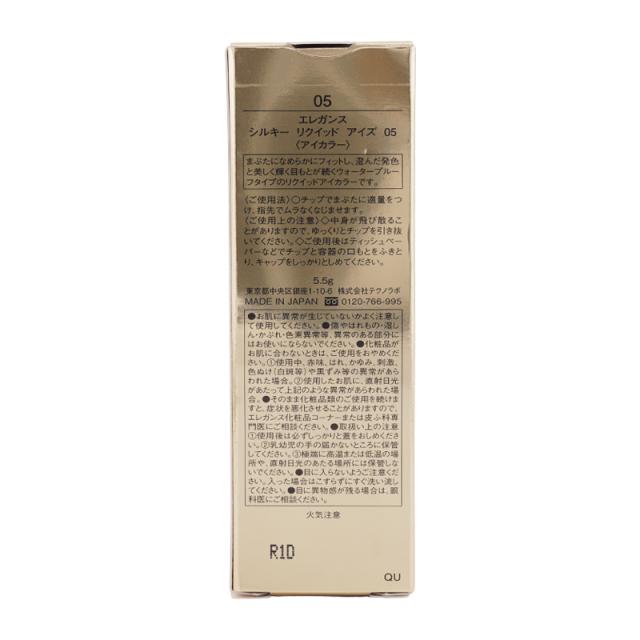 05
エレガンス
シルキー リクイッド アイズ 05
〈アイカラー〉
まぶたになめらかにフィットし、澄んだ発色
と美しく輝く目もとが続くウォータープルー
フタイプのリクイッドアイカラーです。
〈ご使用法〉◇チップでまぶたに適量をつ
け、指先でムラなくなじませます。
〈ご使用上の注意〉◇中身が飛び散ること
がありますので、ゆっくりとチップを引き抜
いてください。◇ご使用後はティッシュペー
パーなどでチップと容器の口もとをふきと
り、キャップをしっかりとしめてください。
5.5g
東京都中央区銀座1-10-6 株式会社テクノラボ
MADE IN JAPAN 0120-766-995
●お肌に異常が生じていないかよく注意し
て使用してください。●傷やはれもの・湿し
ん・かぶれ・色素異常等、異常のある部分に
はお使いにならないでください。●化粧品が
お肌に合わないときは、ご使用をおやめくだ
さい。①使用中、赤味、はれ、かゆみ、刺激、
色ぬけ(白斑等)や黒ずみ等の異常があら
われた場合。②使用したお肌に、直射日光
があたって上記のような異常があらわれた場
合。●そのまま化粧品類のご使用を続けま
すと、症状を悪化させることがありますので、
エレガンス化粧品コーナーまたは皮ふ科専
門医にご相談ください。●取扱い上の注意
①使用後は必ずしっかりと蓋をおしめくださ
い。②乳幼児の手の届かないところに保管
してください。③極端に高温または低温の場
所や、直射日光のあたる場所には保管しな
いでください。●目に入らないようご注意くだ
さい。入った場合はこすらずにすぐ洗い流し
てください。●目に異物感が残る場合は、眼
科医にご相談ください。
火気注意
R1D
QU